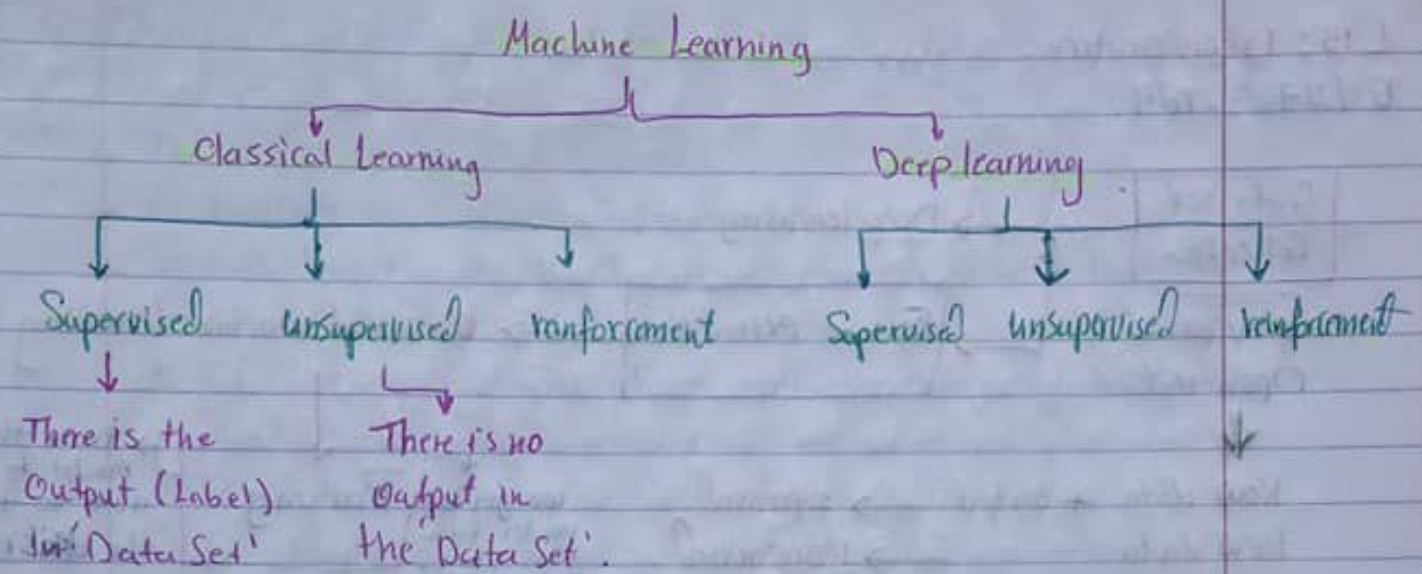 Machine Learning
Classical Learning Deep learning
Supervised unsupervised renforcement Supervised unsupervised reinforcement
There is the There is no
Output (Label) output in
in 'Data Set' the 'Data Set'.